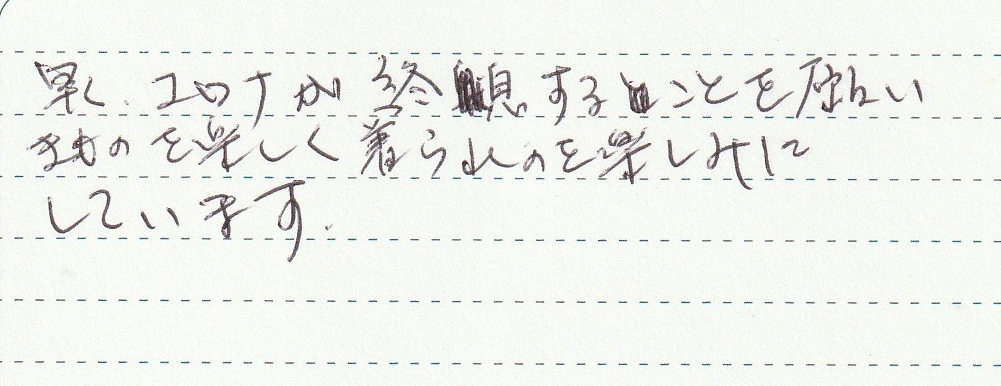 早く、コロナが終息することを願い
きものを楽しく着られのを楽しみに
しています.